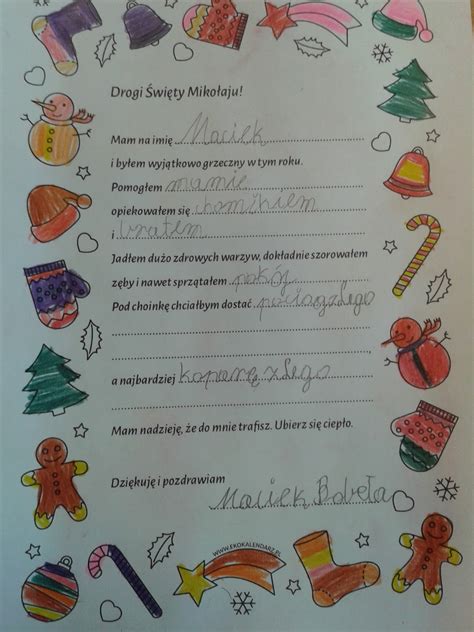 Drogi Święty Mikołaju!
Mam na imię Maciek
i byłem wyjątkowo grzeczny w tym roku.
Pomogłem mamie,
opiekowałem się chomikiem
i bratem
Jadłem dużo zdrowych warzyw, dokładnie szorowałem
zęby i nawet sprzątałem pokój.
Pod choinkę chciałbym dostać pociąg z lego
a najbardziej koparkę z lego
Mam nadzieję, że do mnie trafisz. Ubierz się ciepło.
Dziękuję i pozdrawiam
Maciek
WWW.EKOKALENDARZ.PL